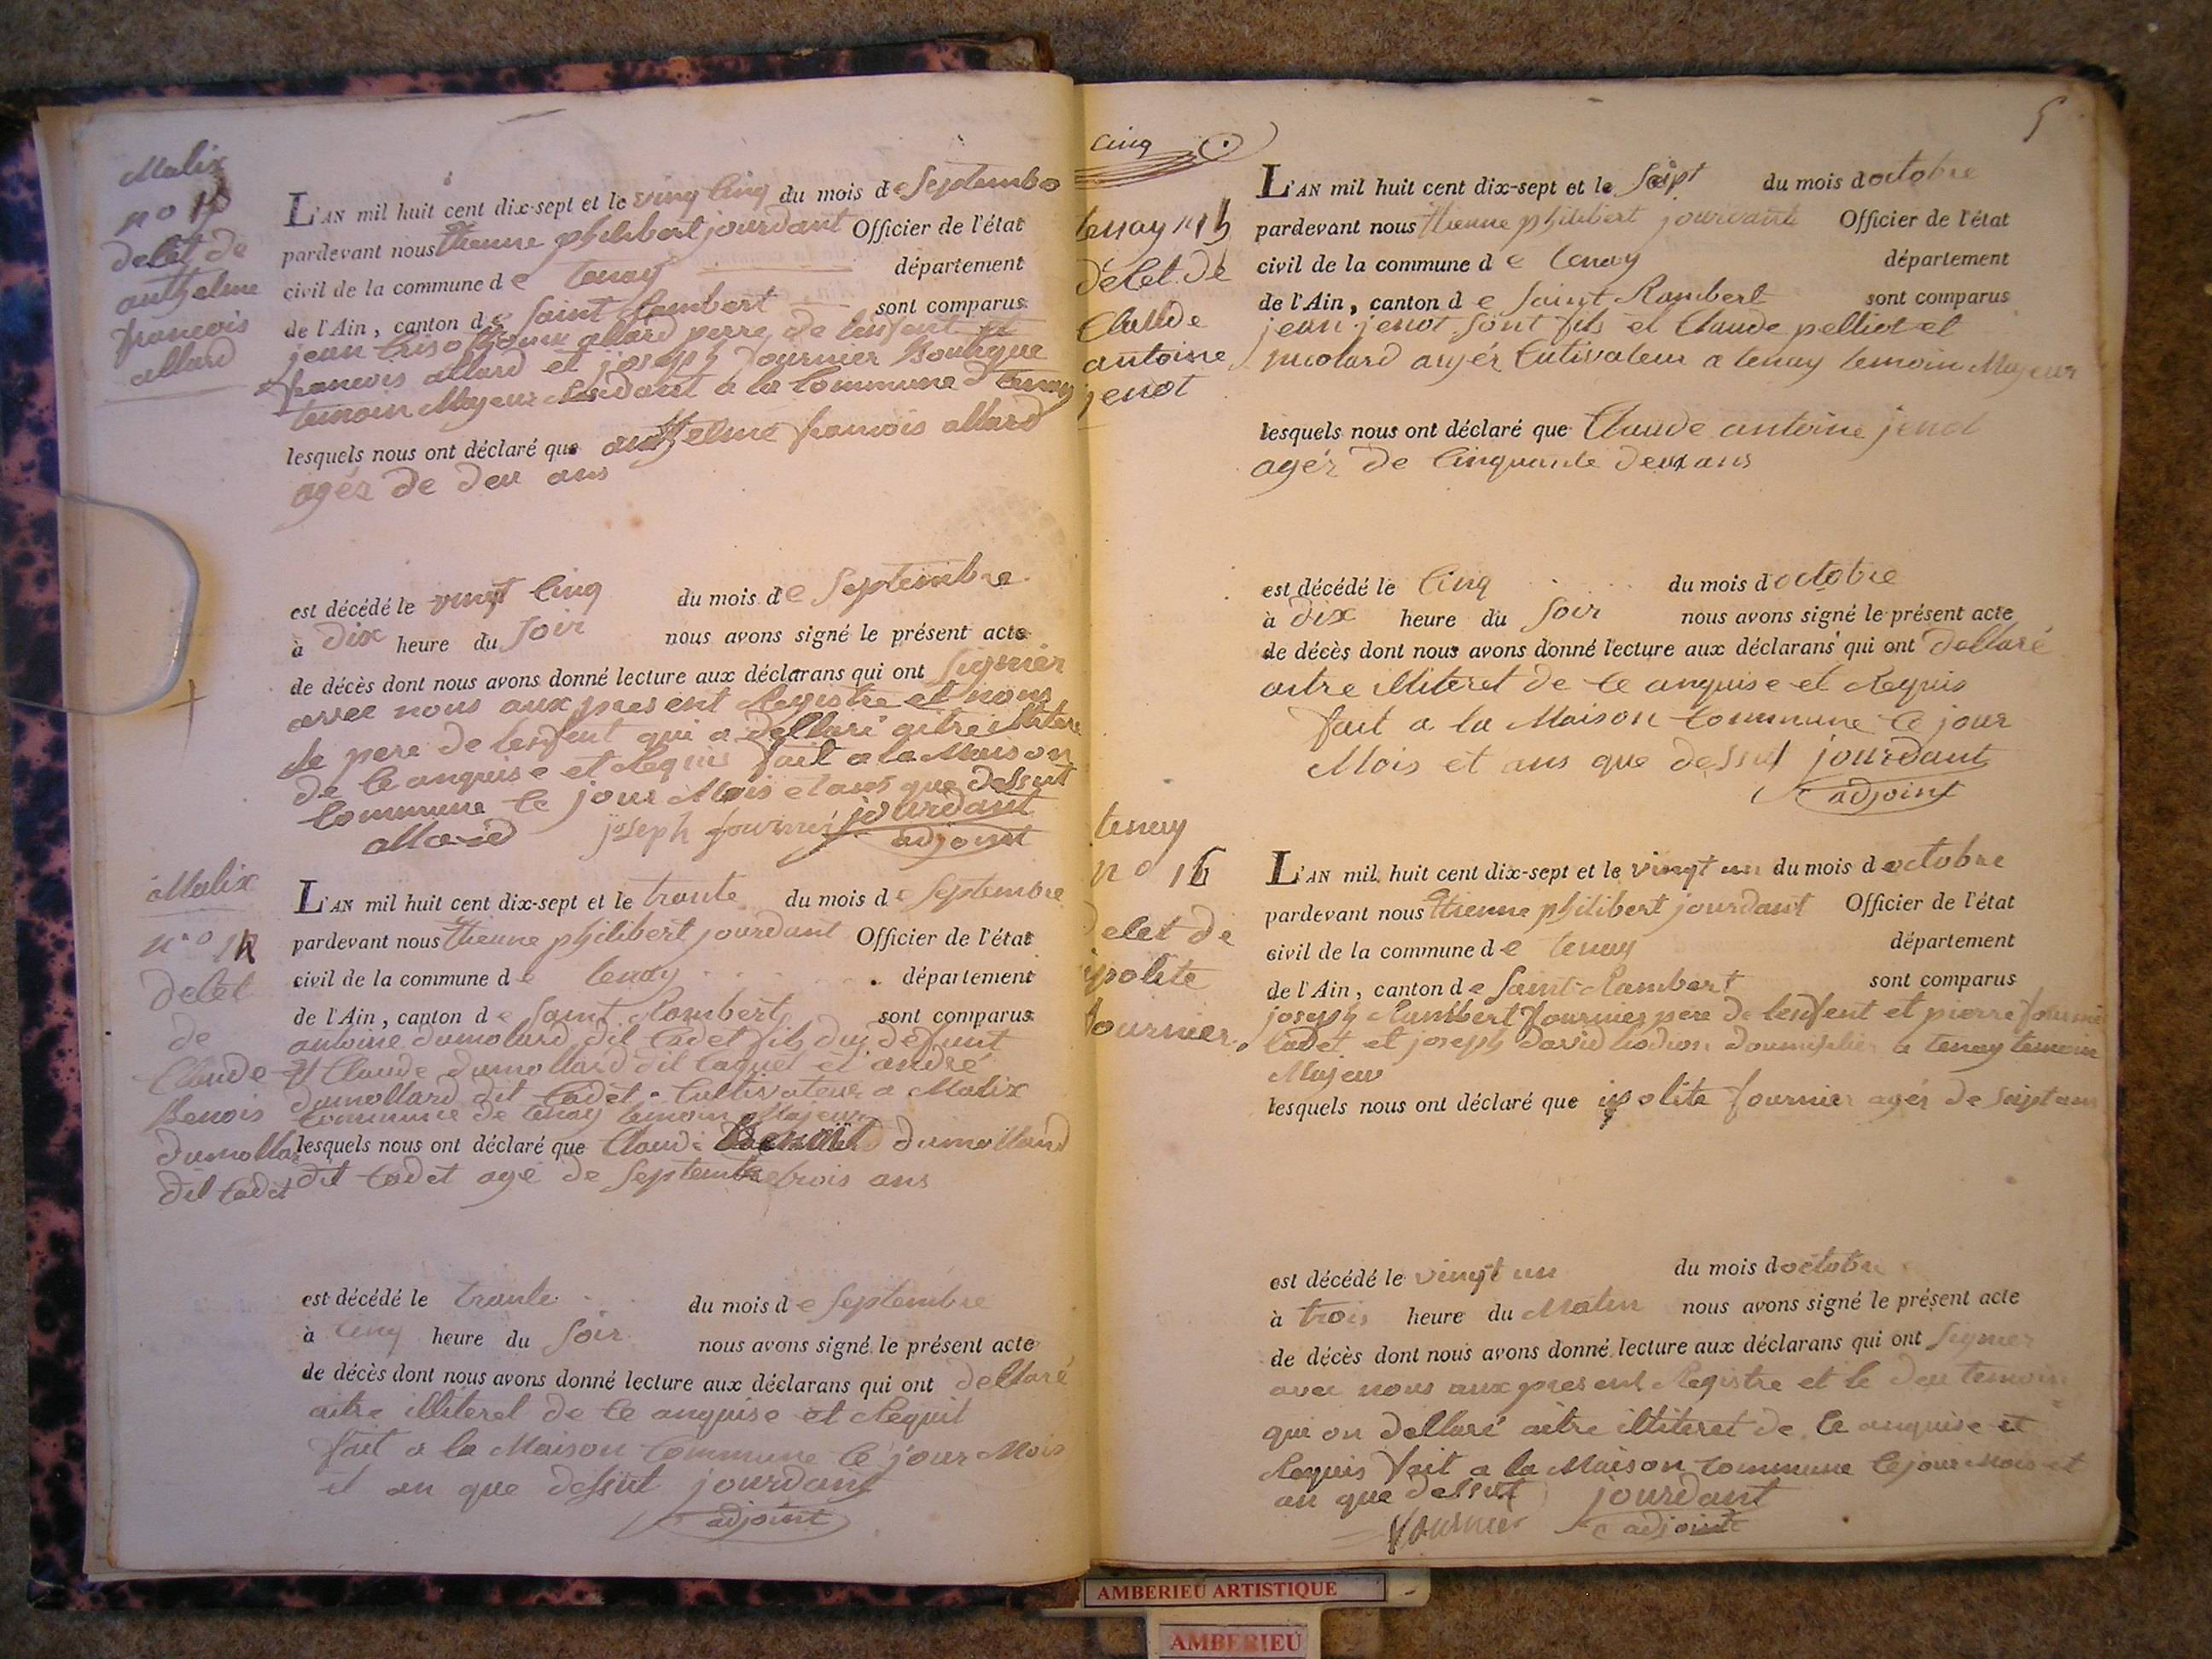 Malix
no
delet de
anthelme
francois
allard
L'AN mil huit cent dix-sept et le ving cinq du mois de Septembo
pardevant nous Etienne philibert jourdant Officier de l'état
civil de la commune de tenay département
de l'Ain, canton de Saint Rambert sont comparus
jean allard perre de lenfent et
francois allard et joseph fournier
temoin Majeur a la Commune d tenay
lesquels nous ont déclaré que anthelme francois allard
agér de deu ans
est décédé le vingt cinq du mois de Septembre
à dix heure du Soir nous avons signé le présent acte
de décès dont nous avons donné lecture aux déclarans qui ont Signier
avec nous aux present Registre et nons
le pere de lenfent qui a dellaré aitre
de ce anquise et Requis fait a la Maison
Commune ce jour Mois et ans que dessut
allard joseph fournier jourdant
adjoint
Malix
no
delet
de
Claude
Benois
dumollar
dit Cadet
L'AN mil huit cent dix-sept et le trante du mois de Septembre
pardevant nous Etienne philibert jourdant Officier de l'état
civil de la commune de tenay département
de l'Ain, canton de Saint Rambert sont comparus
antoine dumolard dit Cadet fils du defunt
Claude dumollard dit et andré
dumollard dit Cadet Cultivateur a Malix
Commune de tenay temoin Majeur
lesquels nous ont déclaré que Claude dumollard
dit Cadet agé de Septembe trois ans
est décédé le trante du mois de Septembre
à cinq heure du Soir nous avons signé le présent acte
de décès dont nous avons donné lecture aux déclarans qui ont dellaré
aitre illiteret de ce anquise et Requit
fait a la Maison Commune ce jour Mois
et an que dessut jourdant
adjoint
cinq
5
tenay n 15
délet de
Claude
antoine
jenot
L'AN mil huit cent dix-sept et le Sept du mois doctobre
pardevant nous Etienne philibert jourdant Officier de l'état
civil de la commune de tenay département
de l'Ain, canton de Saint Rambert sont comparus
jean jenot Sont fils et Claude pelliot et
agér Cutivateur a tenay temoin Majeur
lesquels nous ont déclaré que Claude antoine jenot
agér de Cinquante deux ans
est décédé le Cinq du mois doctobre
à dix heure du Soir nous avons signé le présent acte
de décès dont nous avons donné lecture aux déclarans qui ont dellaré
aitre illiteret de ce anquise et Requis
fait a la Maison Commune ce jour
Mois et ans que dessut jourdant
adjoint
tenay
no 16
delet de
ipolite
fournier
L'AN mil huit cent dix-sept et le vingt un du mois doctobre
pardevant nous Etienne philibert jourdant Officier de l'état
civil de la commune de tenay département
de l'Ain, canton de Saint Rambert sont comparus
joseph Rambbert fournier pere de lenfent et pierre fournie
Cadet et joseph david a tenay temoin
Majeu
lesquels nous ont déclaré que ipolite fournier agér de Saipt ans
est décédé le vingt un du mois doctobre
à trois heure du Matin nous avons signé le présent acte
de décès dont nous avons donné lecture aux déclarans qui ont Signer
avec nous aux present Registre et le deu temoin
qui on dellaré aitre illiteret de ce anquise et
Requis fait a la Maison Commune ce jour Mois et
an que dessut jourdant
fournier adjoint
AMBERIEU ARTISTIQUE
AMBERIEU